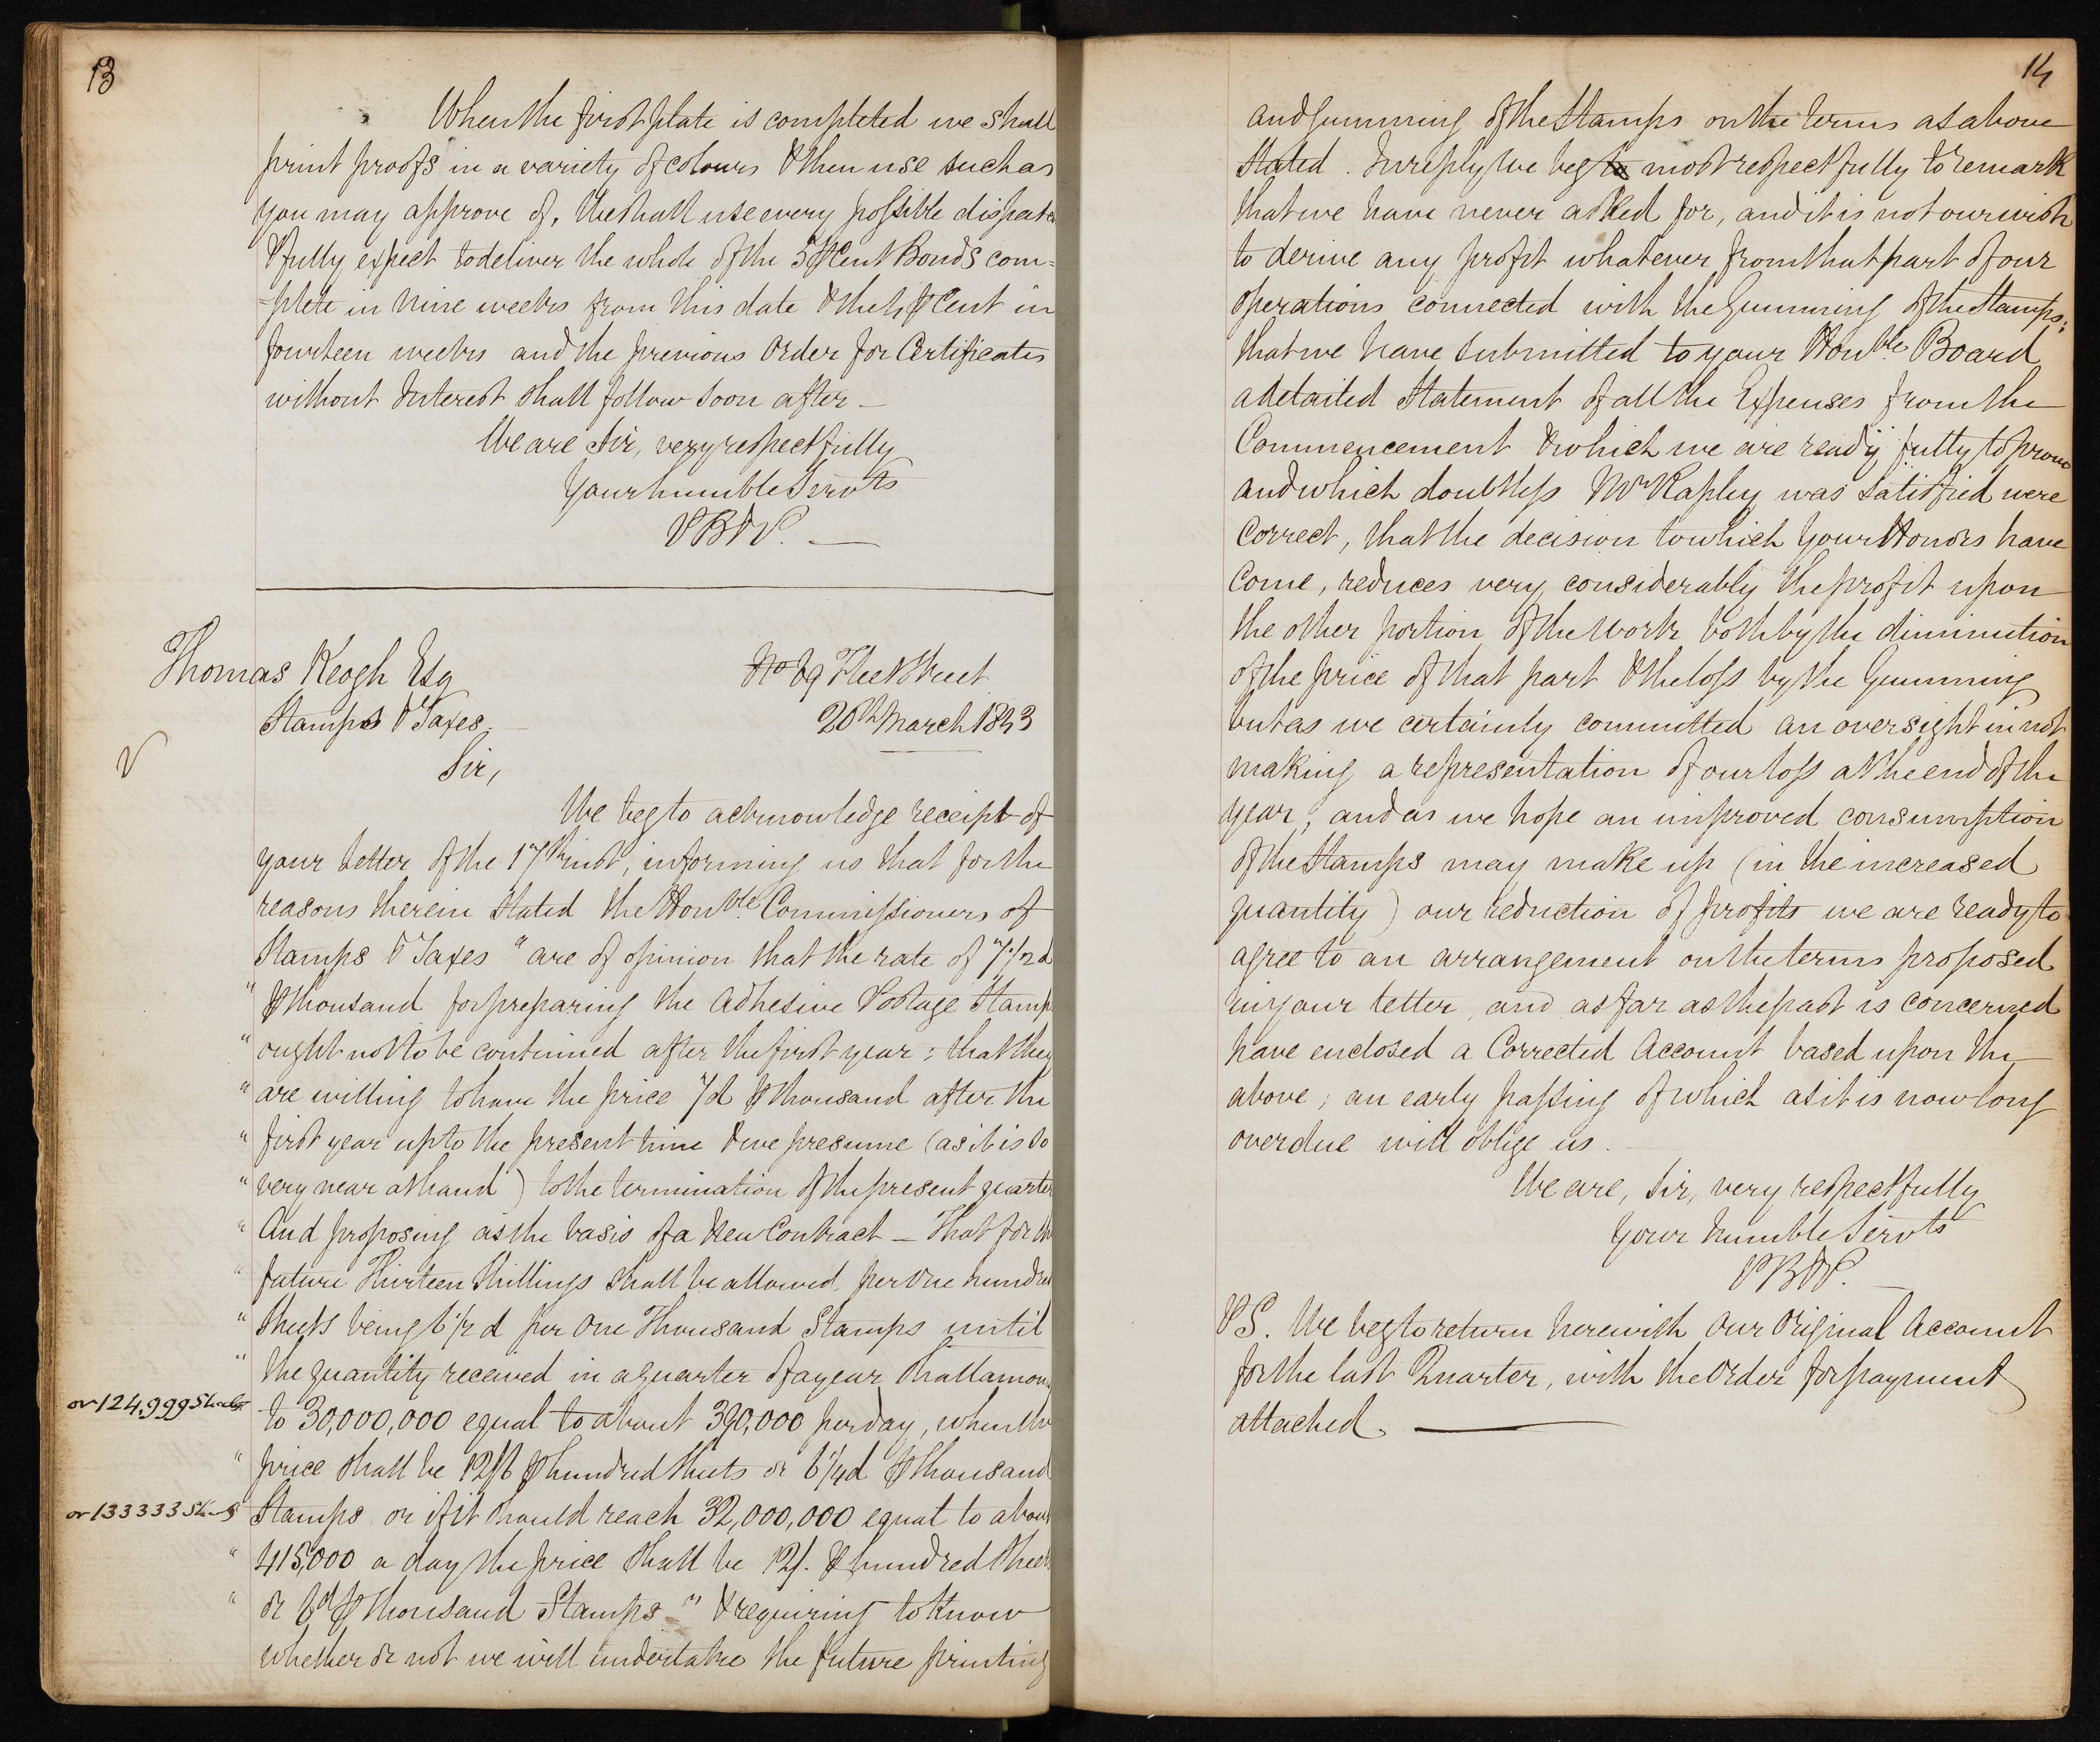 13
When the first plate is completed we shall
print proofs in a variety of colours & then use such as
you may approve of, We shall use every possible dispatch
& fully expect to deliver the whole of the 5 ⅌ Cent Bonds com=
=plete in Nine weeks from this date & the ⅌ Cent in
fourteen weeks and the previous Order for Certificates
without Interest shall follow soon after —
We are Sir, very respectfully
Your humble Servts
PB&P. —
Thomas Keogh Esq
Stamps & Taxes
No 69 Fleet Street
20th March 1843
Sir,
We beg to acknowledge receipt of
your letter of the 17th inst, informing us that for the
reasons therein stated the Honble Commissioners of
Stamps & Taxes "are of opinion that the rate of 7 1/2 d
" ⅌ thousand for preparing the Adhesive Postage Stamp
" ought not to be continued after the first year; that they
" are willing to have the price 7d ⅌ thousand after the
" first year up to the present time & we presume (as it is so
" very near at hand) to the termination of the present quarter
" And proposing as the basis of a New Contract — That for the
" future Thirteen Shillings shall be allowed per One hundred
" Sheets being 6 1/2 d per One Thousand Stamps until
" the quantity received in a quarter of a year shall amount
or 124,999 Sheets
to 30,000,000 equal to about 390,000 per day, when the
" price shall be 12/6 ⅌ hundred sheets or 6 1/4 d ⅌ thousand
or 133333 Sheets
Stamps or if it should reach 32,000,000 equal to about
" 415,000 a day the price shall be 12/. ⅌ hundred Sheets
" or 6d ⅌ thousand Stamps" & requiring to know
whether or not we will undertake the future printing
14
and Gumming of the Stamps on the terms as above
stated. In reply we beg to most respectfully to remark
that we have never asked for, and it is not our wish
to derive any profit whatever from that part of our
operations connected with the Gumming of the Stamps;
that we have submitted to your Honble Board
a detailed Statement of all the Expenses from the
Commencement & which we are ready fully to prove
and which doubtless Mr Rapley was satisfied were
correct, that the decision to which Your Honors have
come, reduces very considerably the profit upon
the other portion of the work both by the diminution
of the price of that part & the loss by the Gumming
but as we certainly committed an oversight in not
making a representation of our loss at the end of the
year; and as we hope an improved consumption
of the Stamps may make up (in the increased
quantity) our reduction of profits we are ready to
agree to an arrangement on the terms proposed
in your letter, and as far as the past is concerned
have enclosed a Corrected Account based upon the
above; an early passing of which as it is now long
overdue will oblige us. —
We are, Sir, very respectfully
Your humble Servts
PB&P. —
PS. We beg to return herewith our Original Account
for the last Quarter, with the Order for payment
attached. —